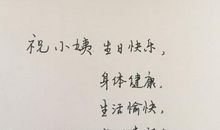 祝小姨生日快乐,
身体健康,
生活愉快,